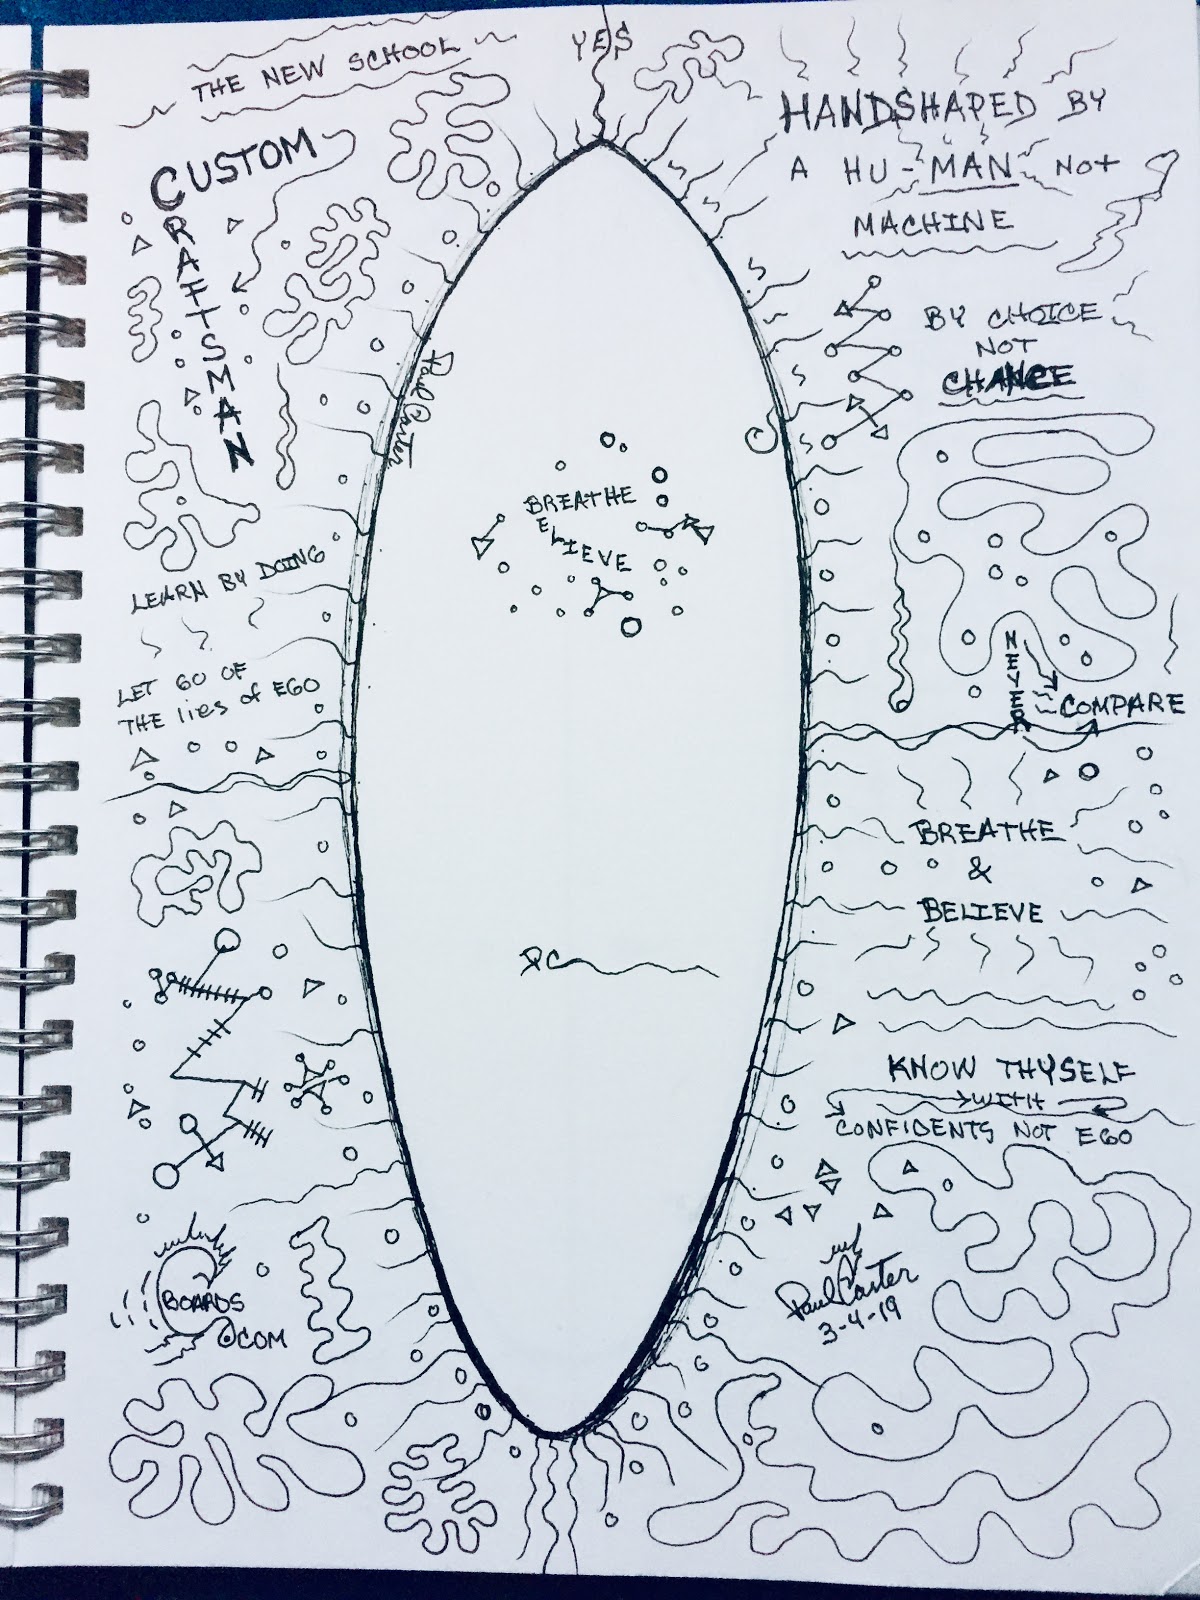 THE NEW SCHOOL
YES
CUSTOM
CRAFTSMAN
HANDSHAPED BY
A HU-MAN NOT
MACHINE
BY CHOICE
NOT
CHANCE
Paul Carter
BREATHE
ELIEVE
LEARN BY DOING
LET GO OF
THE lies of EGO
NEVER
COMPARE
BREATHE
&
BELIEVE
PC
KNOW THYSELF
WITH
CONFIDENTS NOT EGO
C
BOARDS
.COM
Paul Carter
3-4-19